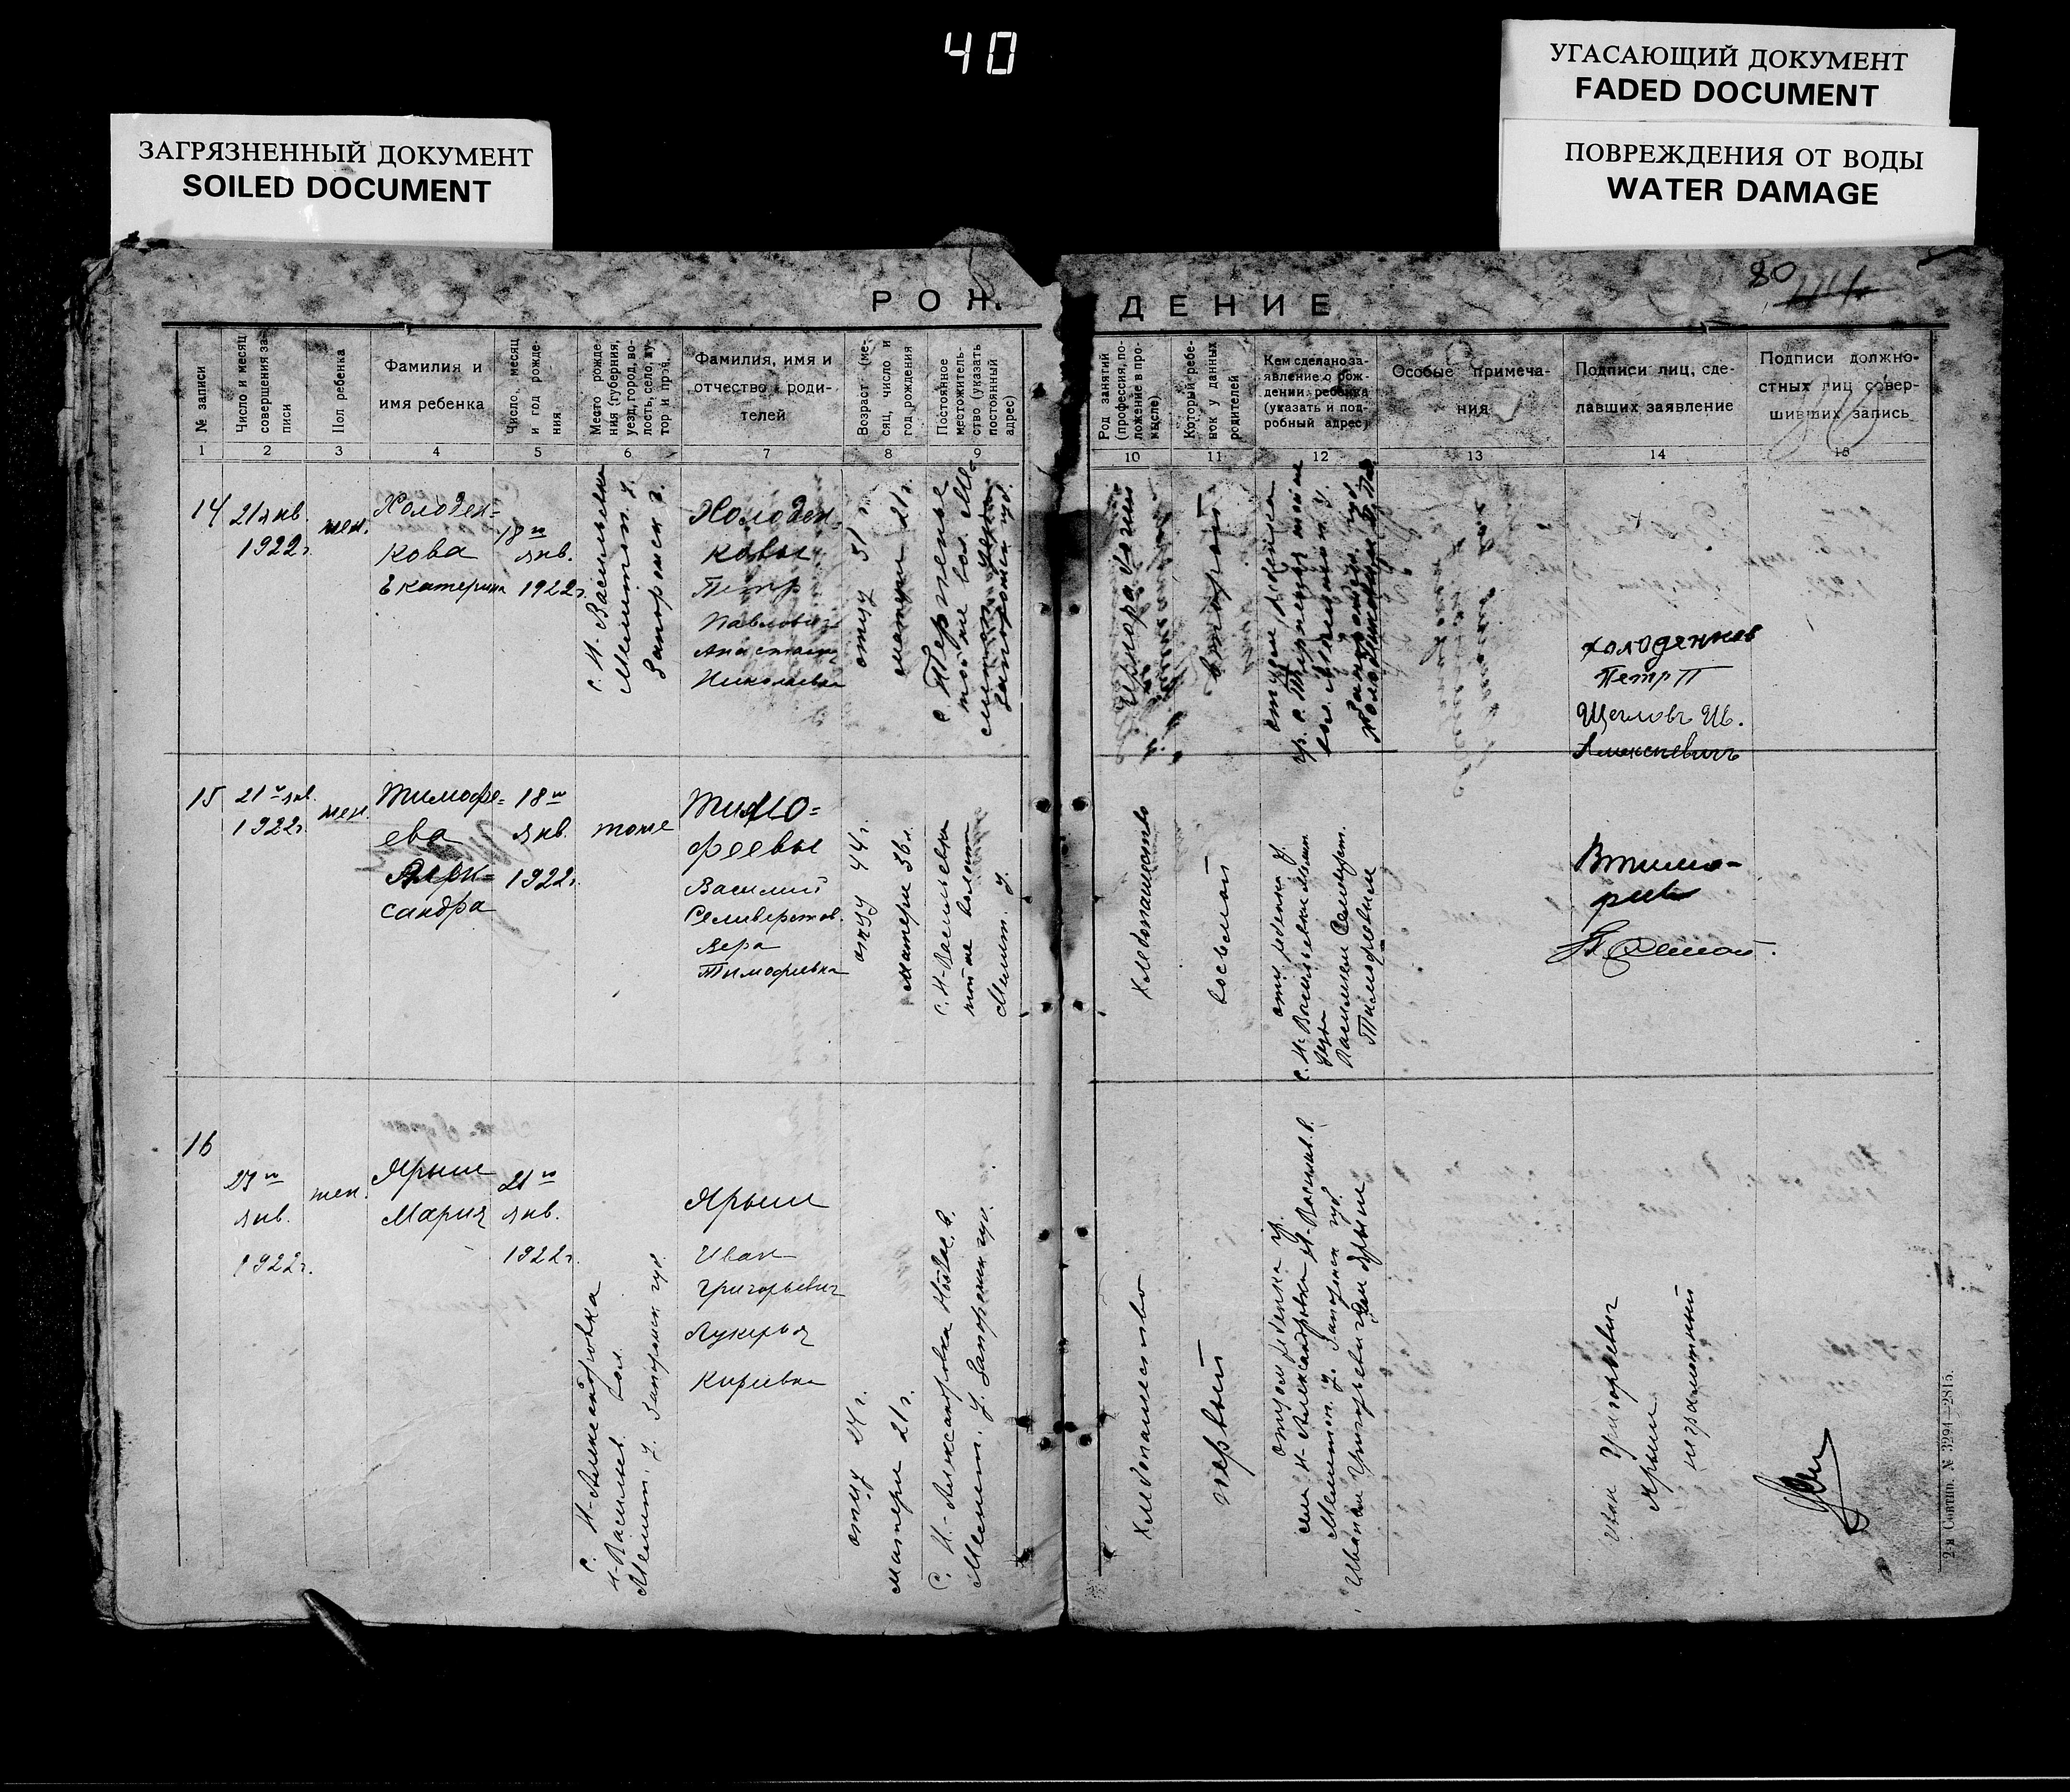 40
УГАСАЮЩИЙ ДОКУМЕНТ
FADED DOCUMENT
ЗАГРЯЗНЕННЫЙ ДОКУМЕНТ
SOILED DOCUMENT
ПОВРЕЖДЕНИЯ ОТ ВОДЫ
WATER DAMAGE
80
РОЖ
ДЕНИЕ
№ записи
Число и месяц
совершения за-
писи
Пол ребенка
Фамилия и
имя ребенка
Число, месяц
и год рожде-
ния
Место рожде-
ния (губерния,
уезд, город, во-
лость, село, ху-
тор и проч.
Фамилия, имя и
отчество роди-
телей
Возраст (ме-
сяц, число и
год рождения
Постоянное
местожитель-
ство (указать
постоянный
адрес)
Род занятий
(профессия, по-
ложение в про-
мысле)
Который ребе-
нок у данных
родителей
Кем сделано за-
явление о рож-
дении ребенка
(указать и под-
робный адрес)
Особые примеча-
ния
Подписи лиц, сде-
лавших заявление
Подписи должно-
стных лиц совер-
шивших запись
1 2 3 4 5 6 7 8 9 10 11 12 13 14 15
14
21 янв.
1922г.
жен.
Холоден-
кова
Екатерина
18го
янв.
1922г.
с. Н-Васильевка
Мелитоп. у.
Запорожск. г.
Холоден-
ковы
Петр
Павлович
Анастасия
Николаевна
отцу 31 г.
матери 21 г.
второй
Холоденков
Петр П
Щегловъ
Алексеевичъ
15
21го янв.
1922г.
жен.
Тимофе-
ева
Алек-
сандра
18го
янв.
1922г.
тоже
Тимо-
феевы
Василий
Селиверстов.
Вера
Тимофеевна
отцу 44 г.
матери 36 л.
с. Н-Васильевка
той же волости
Мелит. у.
Хлебопашество
восьмой
16
27го
янв.
1922г.
жен.
Ярыш
Мария
21го
янв.
1922г.
с. Н-Александровка
Н-Васильев. вол.
Мелит. у. Запорожск. губ.
Ярыш
Иван
Григорьевич
Лукерья
Киреевна
отцу 24 г.
матери 21 г.
с. Н-Александровка
Мелит. у. Запорожск. гу.
Хлебопашество
первый
отцом ребенка гр.
села Н-Александровки Н-Васильев. в.
Мелитоп. у. Запорожск. губ.
Иваном Григорьевичем Ярыш
Иван Григорьевич
Ярыш
неграмотный
2-я Совтип. № 3294—2815.